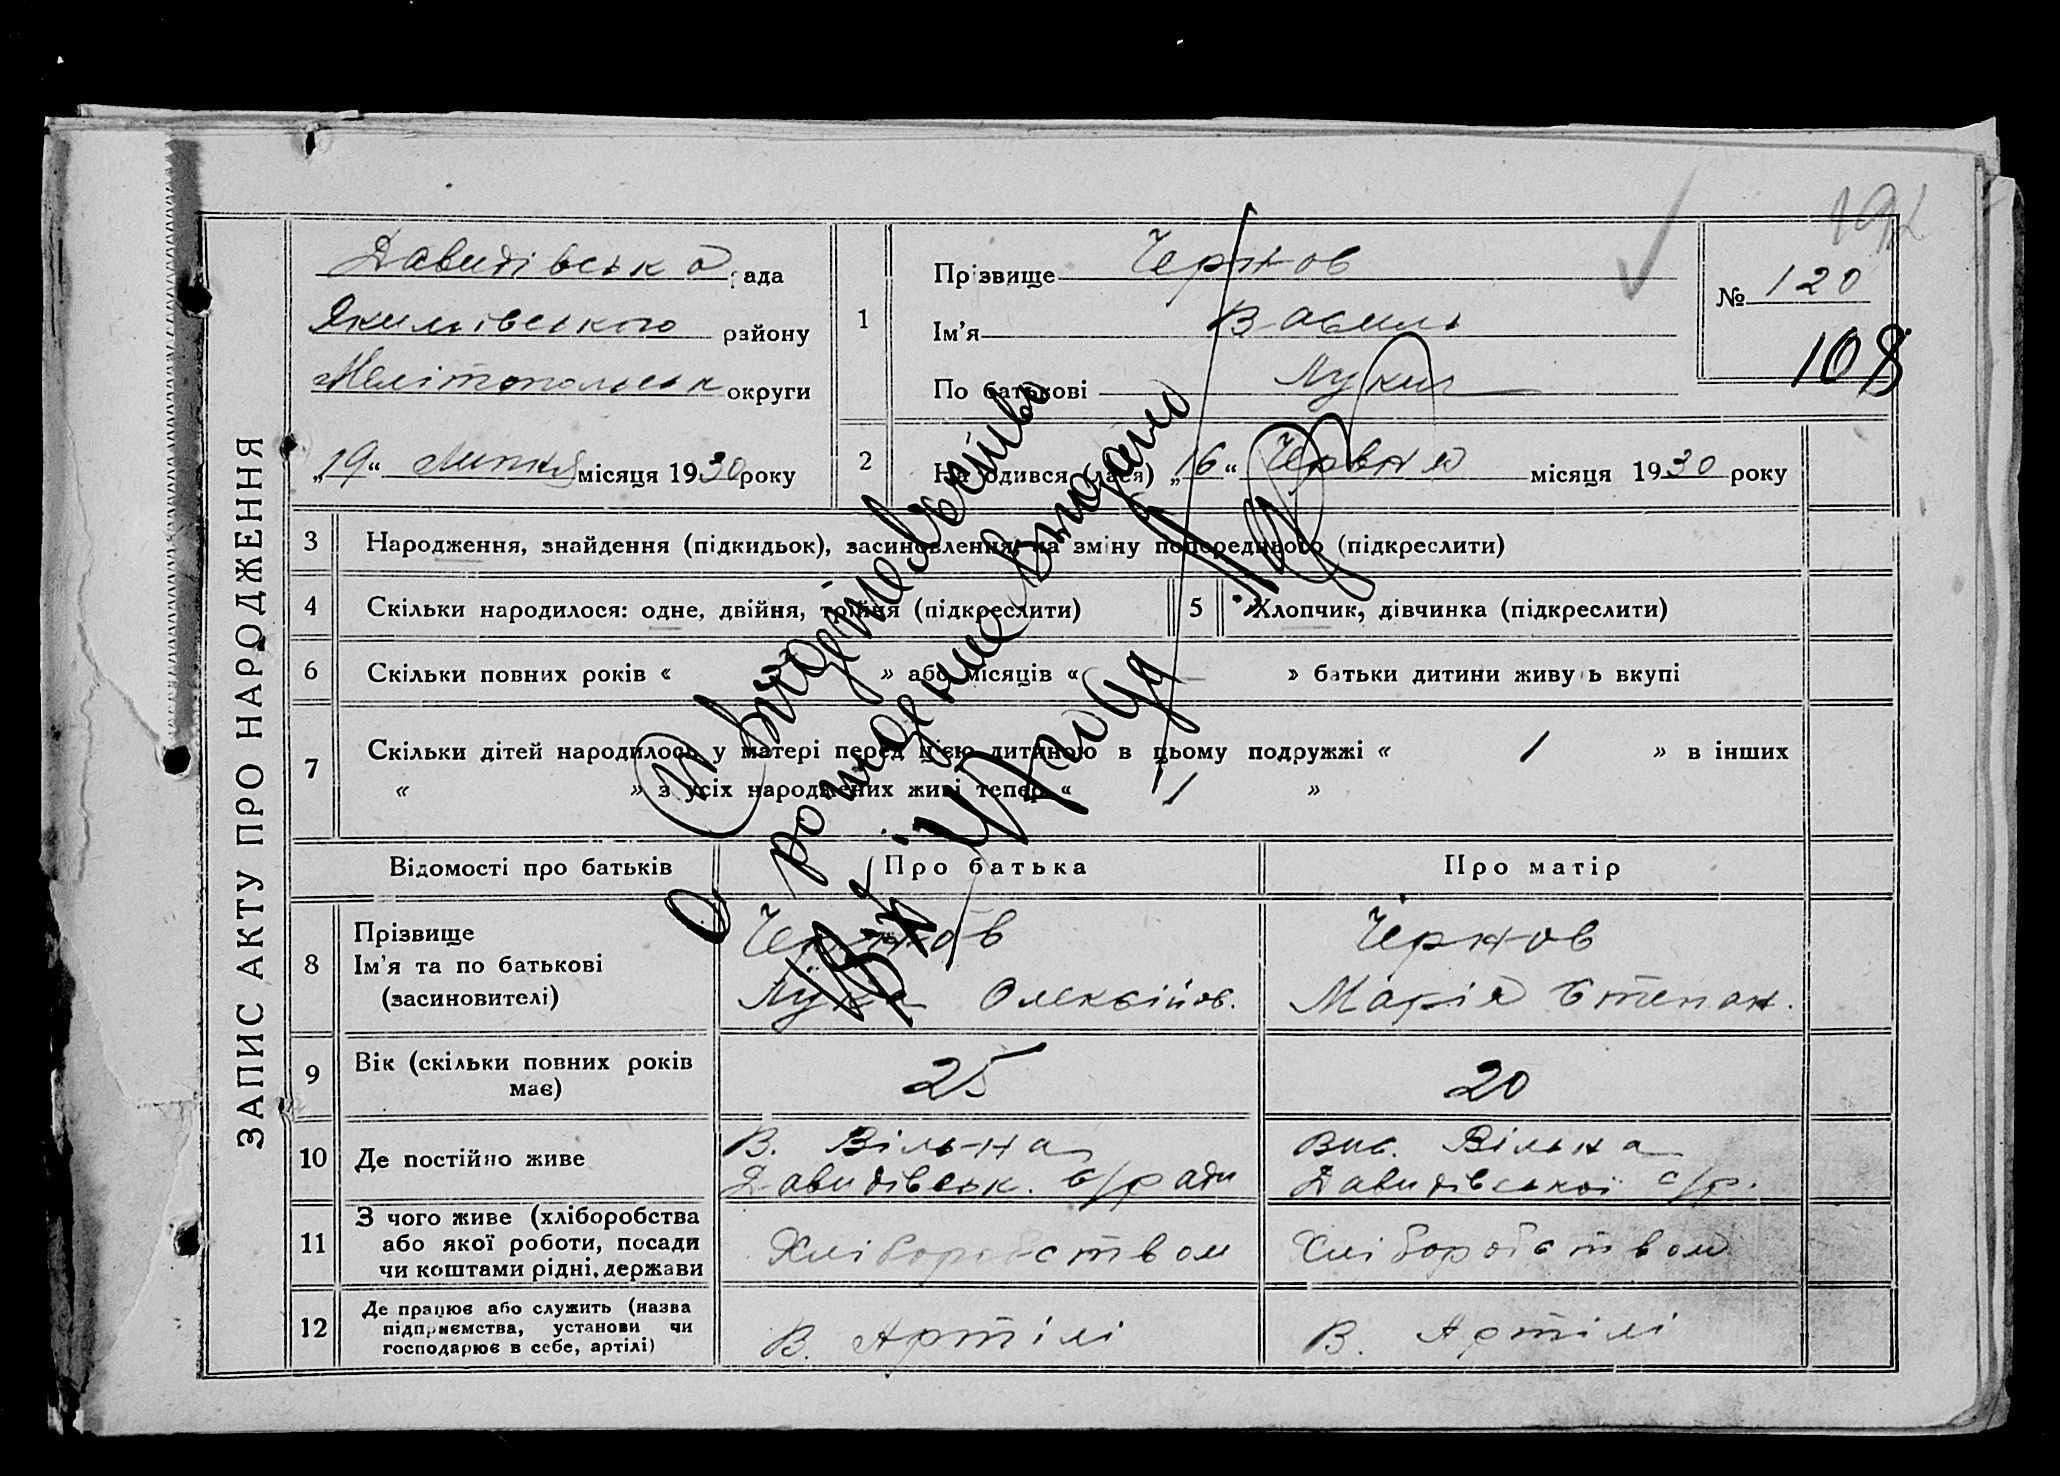 ЗАПИС АКТУ ПРО НАРОДЖЕННЯ
Давидівська рада
Якимівського району
Мелітопольськ округи
„19“ Липня місяця 1930 року
1
Прізвище Чернов
Ім'я Василь
По батькові Лукич
№ 120
108
192
2
Народився (лася) „16“ Червня місяця 1930 року
3 Народження, знайдення (підкидьок), засиновлення, на зміну попереднього (підкреслити)
4 Скільки народилося: одне, двійня, трійня (підкреслити)
5 Хлопчик, дівчинка (підкреслити)
6 Скільки повних років « » або місяців « — » батьки дитини живуть вкупі
7 Скільки дітей народилось у матері перед цією дитиною в цьому подружжі « 1 » в інших
« » з усіх народжених живі тепер « 1 »
Свидетельство
о рождении выдано
Відомості про батьків Про батька Про матір
8 Прізвище
Ім'я та по батькові
(засиновителі)
Чернов
Лука Олексійов.
Чернов
Марія Степан.
9 Вік (скільки повних років
має)
25
20
10 Де постійно живе
В. Вільна
Давидівськ. с/ради
Вис. Вільна
Давидівської с/р.
11 З чого живе (хліборобства
або якої роботи, посади
чи коштами рідні, держави
Хліборобством
Хліборобством
12 Де працює або служить (назва
підприємства, установи чи
господарює в себе, артілі)
В. Артілі
В. Артілі